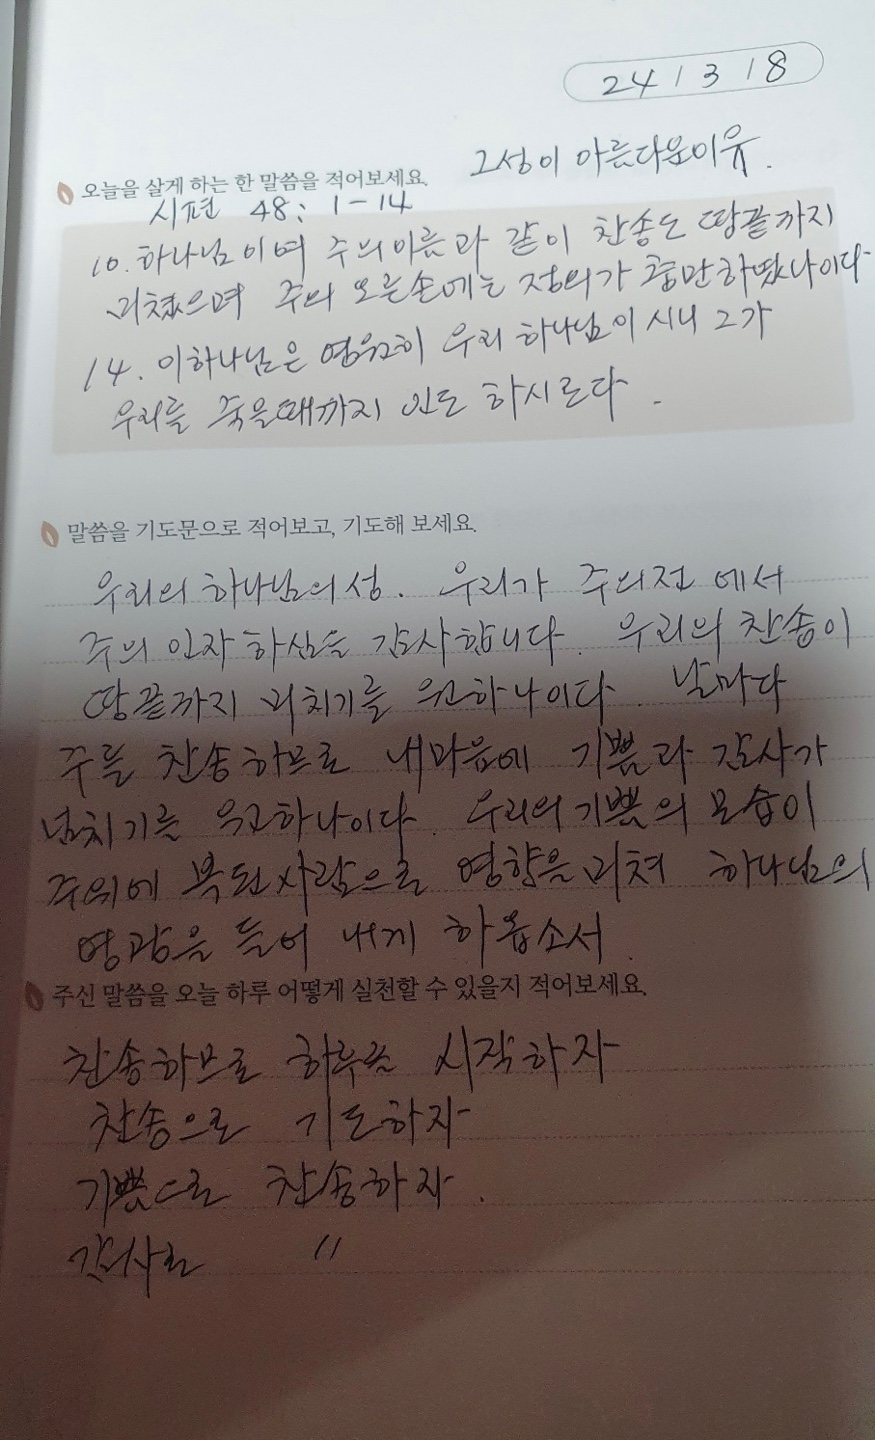 24 / 3 / 8
그성이 아름다운이유.
오늘을 살게 하는 한 말씀을 적어보세요.
시편 48: 1-14
10. 하나님이여 주의이름과 같이 찬송도 땅끝까지
미쳤으며 주의 오른손에는 정의가 충만하였나이다
14. 이하나님은 영원히 우리 하나님이시니 그가
우리를 죽을때까지 인도 하시르다.
말씀을 기도문으로 적어보고, 기도해 보세요.
우리의 하나님의성. 우리가 주의전에서
주의 인자하심을 감사합니다. 우리의 찬송이
땅끝까지 미치기를 원하나이다. 날마다
주를 찬송하므로 내마음에 기쁨과 감사가
넘치기를 원하나이다. 우리의기쁨의 모습이
주위에 복된사람으로 영향을미쳐 하나님의
영광을 들어 내게 하옵소서.
주신 말씀을 오늘 하루 어떻게 실천할 수 있을지 적어보세요.
찬송하므로 하루를 시작하자
찬송으로 기도하자
기쁨으로 찬송하자.
감사로 〃